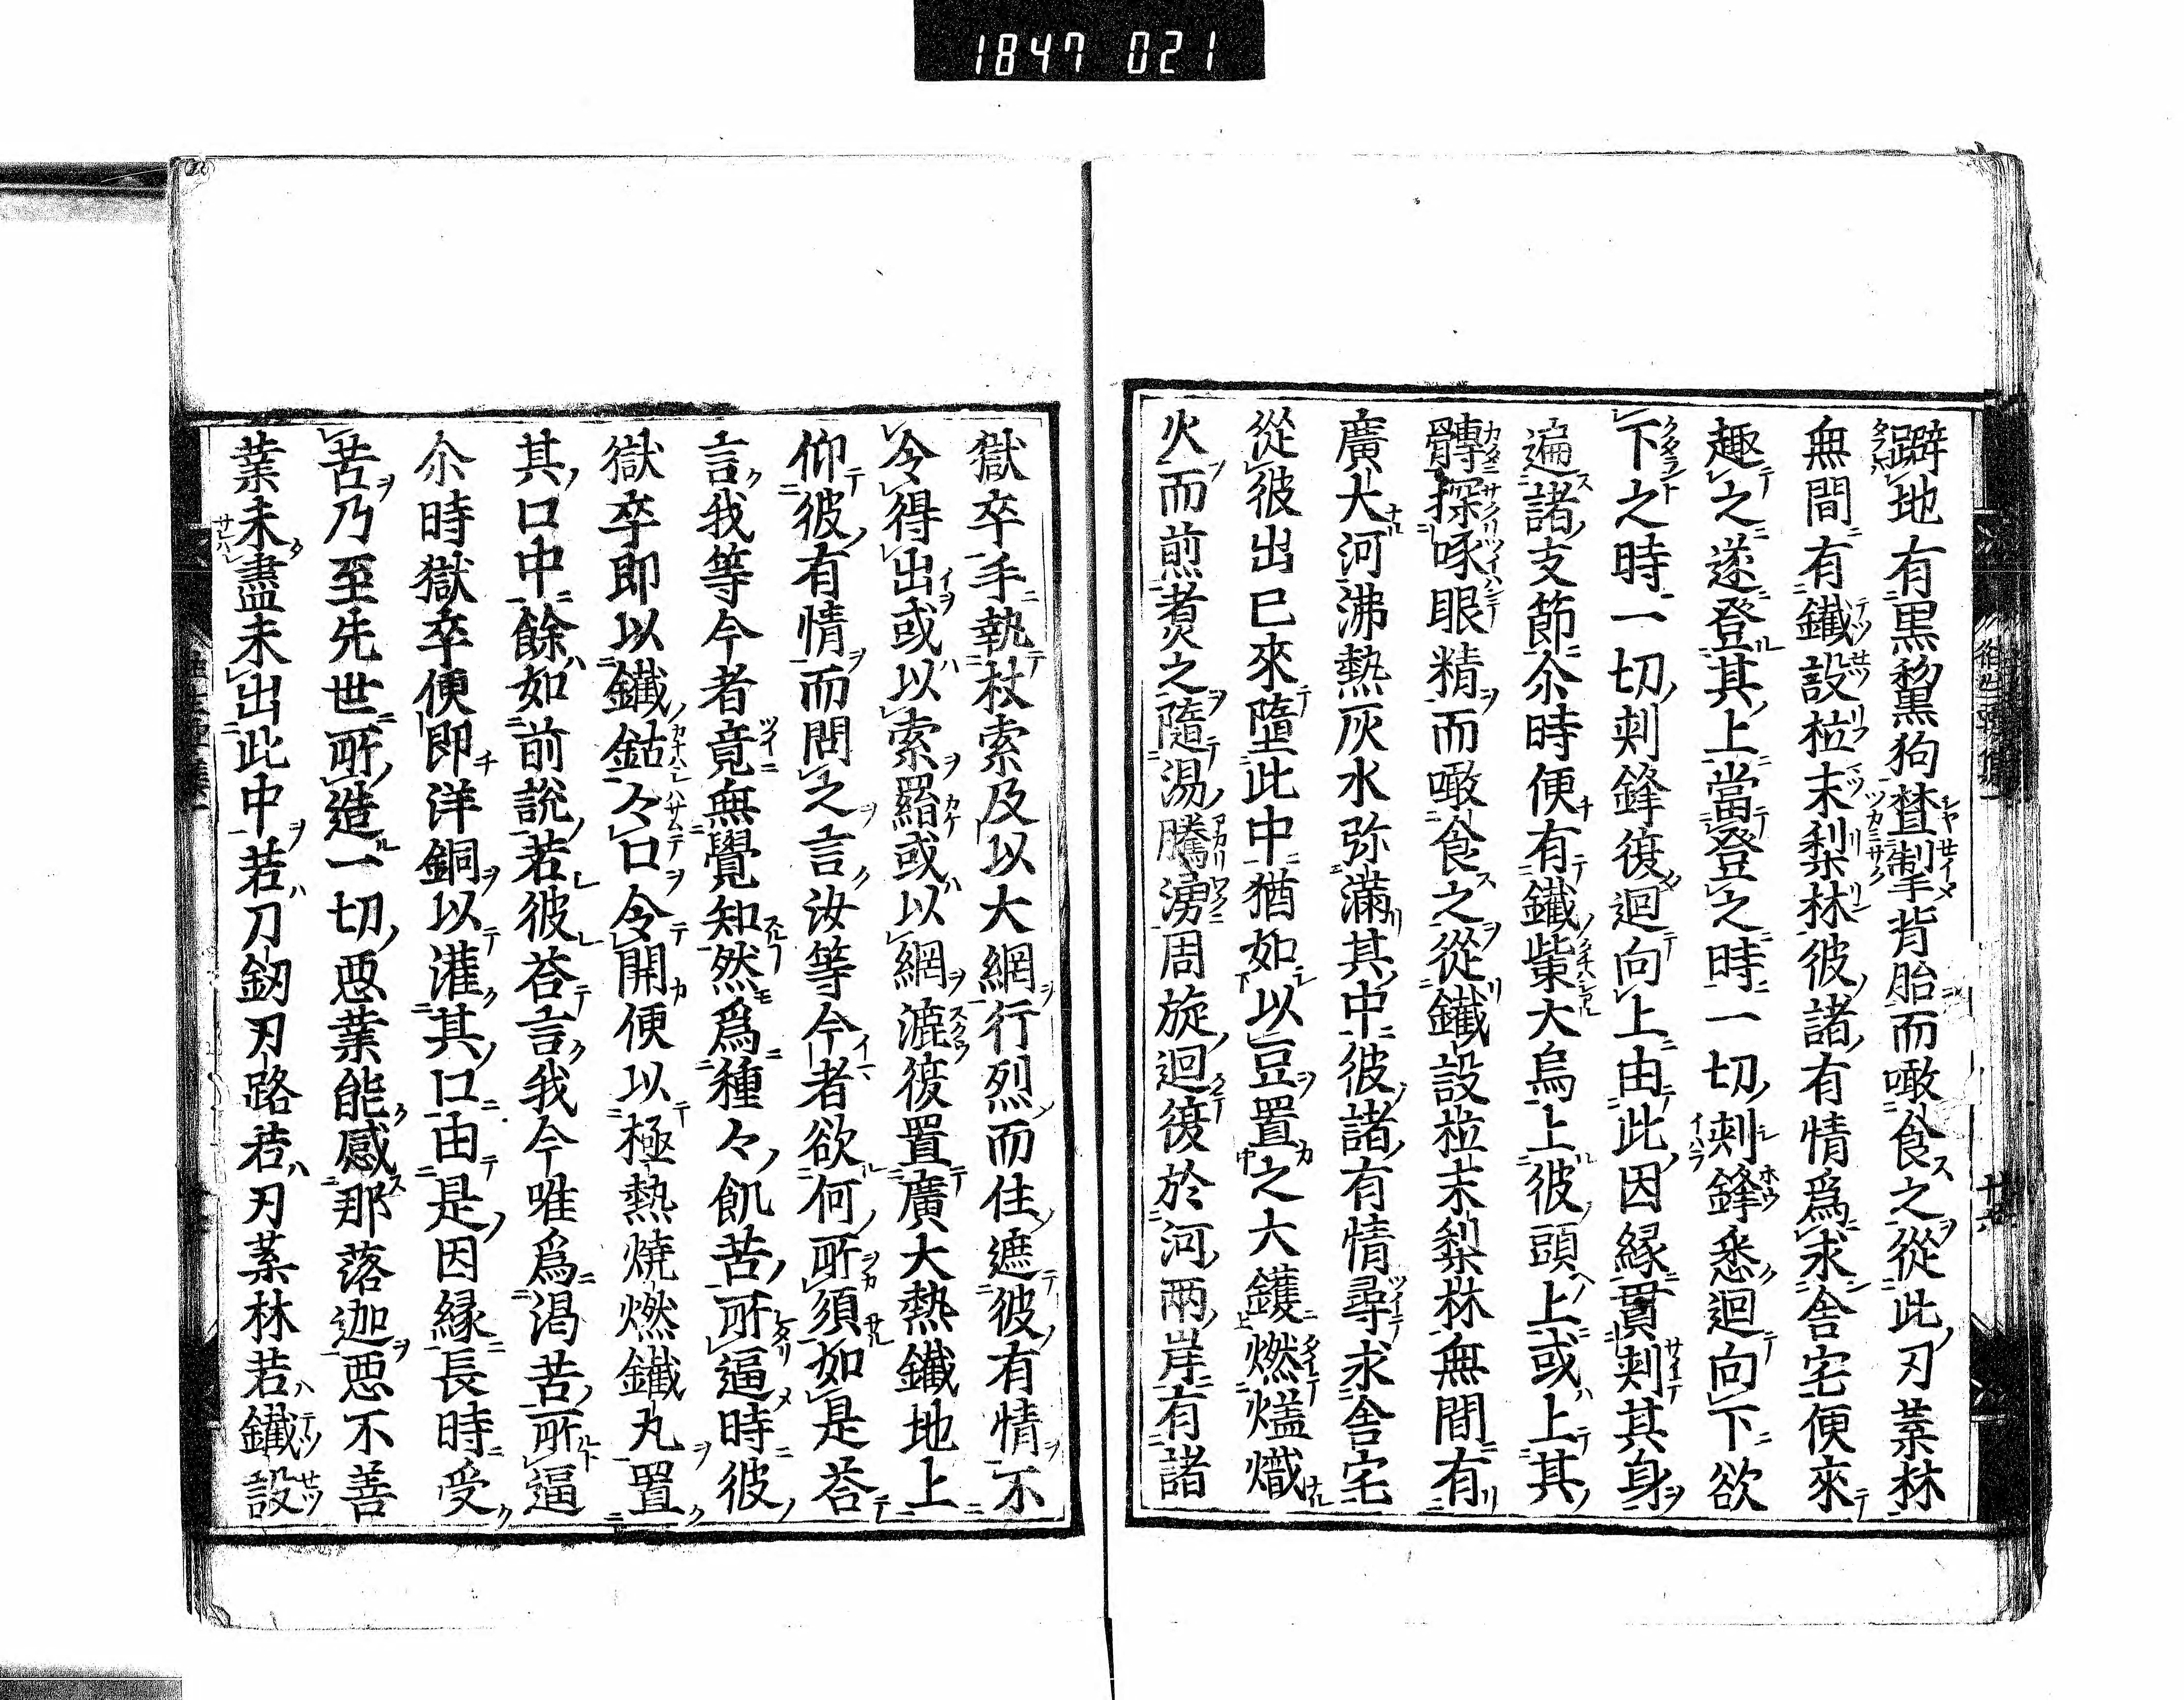 1847 021
躃地有黒黧黒狗摣掣背胎而噉食之從此刃葉林
無間有鐵設柆末梨林彼諸有情爲求舎宅便來
趣之遂登其上當登之時一切刺鋒悉迴向下欲
下之時一切刺鋒復迴向上由此因縁貫刺其身
遍諸支節尒時便有鐵㭰大烏上彼頭上或上其
髆探啄眼精而噉食之從鐵設柆末梨林無間有
廣大河沸熱灰水弥滿其中彼諸有情尋求舎宅
從彼出已來墮此中猶如以豆置之大鑊燃爁熾
火而煎煮之隨湯騰湧周旋迴復於河兩岸有諸
獄卒手執杖索及以大網行烈而住遮彼有情不
令得出或以索羂或以網漉復置廣大熱鐵地上
仰彼有情而問之言汝等今者欲何所須如是荅
言我等今者竟無覺知然爲種々飢苦所逼時彼
獄卒即以鐵鈷々口令開便以極熱燒燃鐵丸置
其口中餘如前説若彼荅言我今唯爲渇苦所逼
尒時獄卒便即洋銅以灌其口由是因縁長時受
苦乃至先世所造一切悪業能感那落迦悪不善
業未盡未出此中若刀釼刃路若刃葉林若鐵設